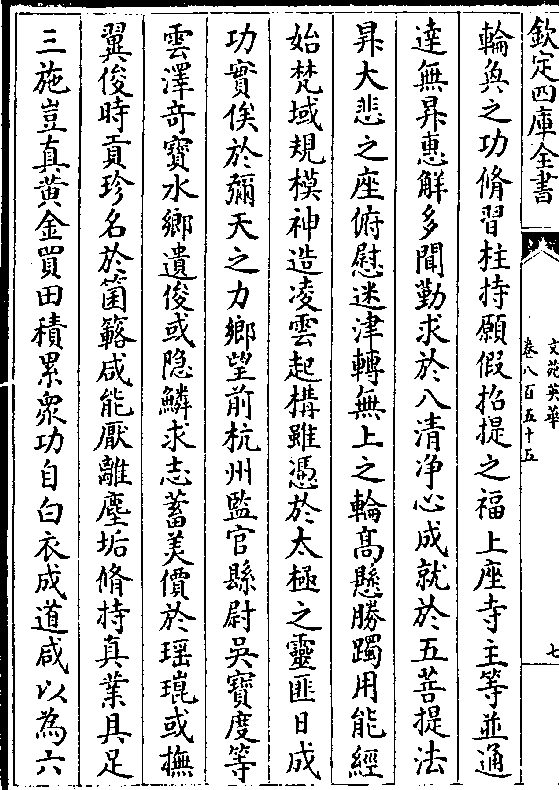 欽定四庫全書
文苑英華
卷八百五十五
七
輪奐之功脩習柱持願假招提之福上座寺主等並通
達無昇惠解多聞勤求於八清净心成就於五菩提法
昇大悲之座俯慰迷津轉無上之輪髙懸勝躅用能經
始梵域規模神造凌雲起構雖憑於太極之靈匪日成
功實俟於彌天之力鄉望前杭州監官縣尉吳寶度等
雲澤竒寳水鄉遺俊或隐鱗求志蓄美價於瑶琨或撫
翼俊時貢珍名於箘簵咸能厭離塵垢脩持真業具足
三施豈真黄金買田積累衆功自白衣成道咸以為六